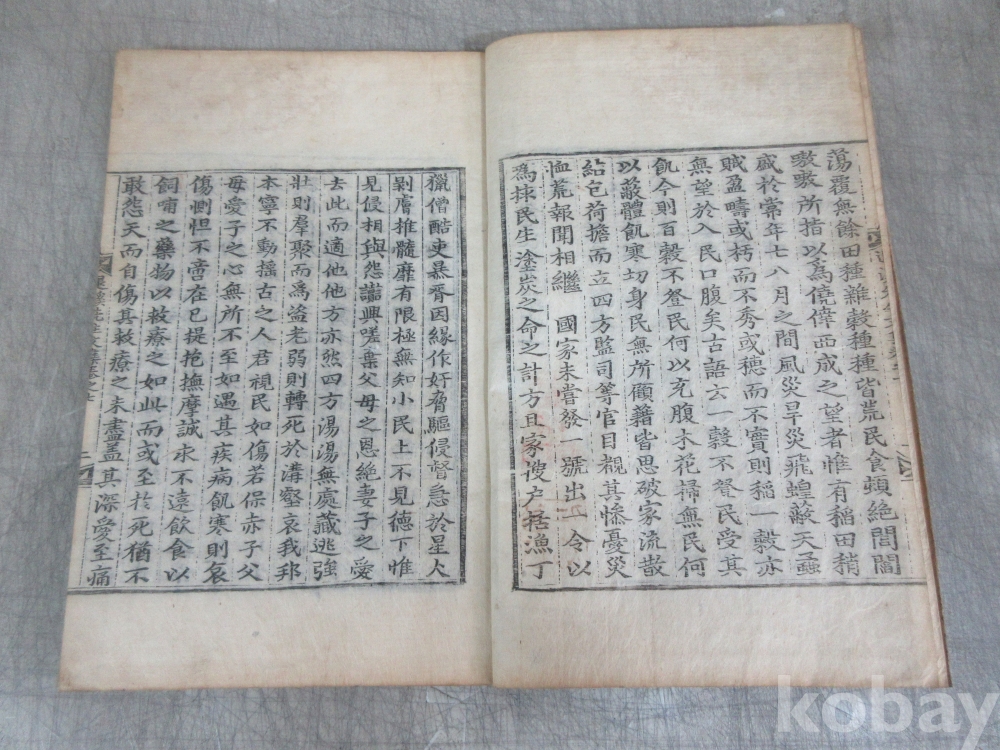 蕩覆無餘田種雜穀種種皆荒民食頻絶閭閻
嗷嗷所指以為僥倖西成之望者惟有稻田稍
盛於常年七八月之間風災旱災飛蝗蔽天蟊
賊盈疇或朽而不秀或穗而不實則稻一穀亦
無望於入民口腹矣古語云一穀不登民受其
飢今則百穀不登民何以充腹木花掃無民何
以蔽體飢寒切身民無所顧藉皆思破家流散
紿包荷擔而立四方監司等官目覩其慘憂災
恤荒報聞相繼 國家未嘗發一號出一令以
為捄民生塗炭之命之計方且家搜户括漁丁
獵僧酷吏暴胥因緣作奸脅驅侵督急於星火
剥膚推髓靡有限極無知小民上不見德下惟
見侵相與怨讟興嗟棄父母之恩絶妻子之愛
去此而適他他方亦然四方湯湯無處藏逃強
壯則羣聚而為盜老弱則轉死於溝壑哀我邦
本寧不動搖古之人君視民如傷若保赤子父
母愛子之心無所不至如遇其疾病飢寒則哀
傷惻怛不啻在已提抱撫摩誠求不遠飲食以
飼哺之藥物以救療之如此而或至於死猶不
敢怨天而自傷其救療之未盡盖其深愛至痛
kobay